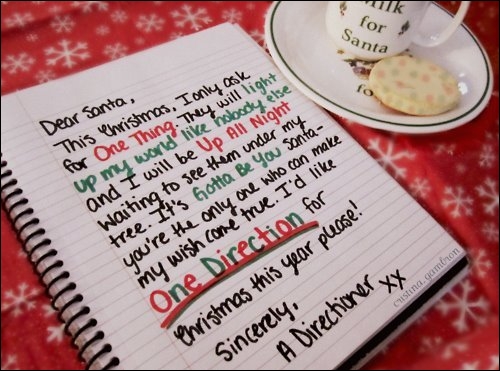 Milk
for
Santa
fo
Dear Santa,
This Christmas, I only ask
for One Thing. They will light
up my world like nobody else
and I will be Up All Night
waiting to see them under my
tree. It's Gotta Be You santa-
you're the only one who can make
my wish come true. I'd like
One Direction for
Christmas this year please!
Sincerely,
A Directioner xx
cristina.gambron